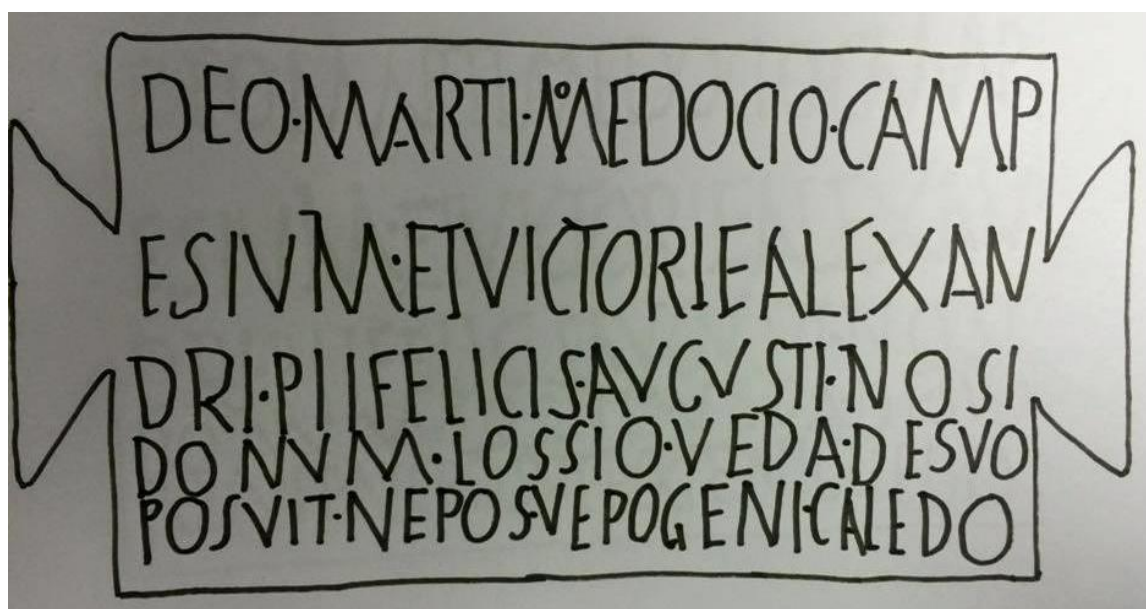 DEO·MARTI·MEDOCIO·CAMP
ESIVM·ETVICTORIEALEXAN
DRI·PIIFELICIS·AVCVSTI·NOSI
DONVM·LOSSIO·VEDA·DESVO
POSVIT·NEPOS·VEPOGENI·CALEDO